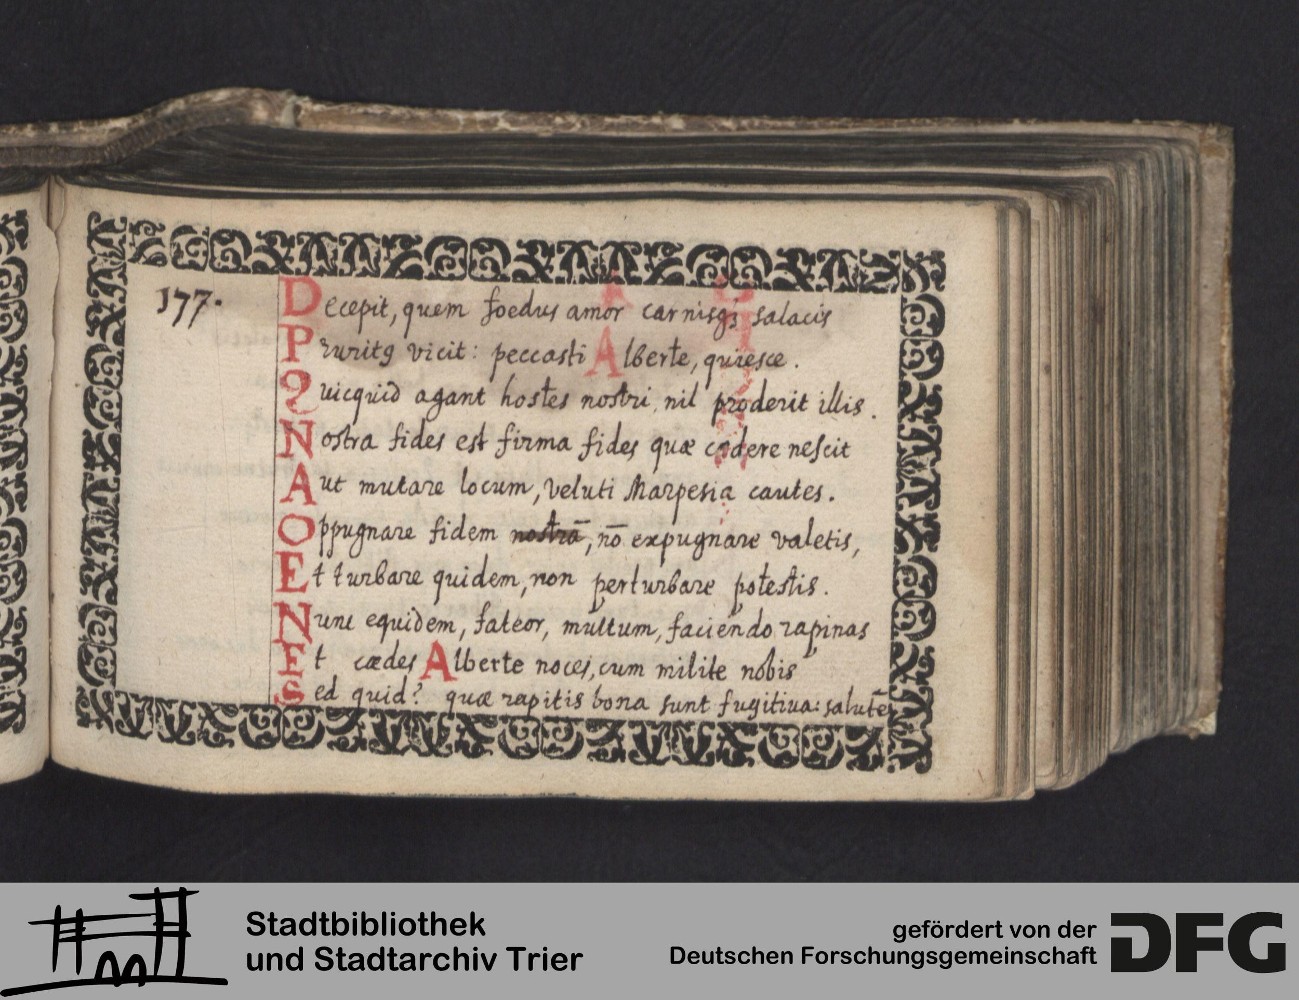 177.
Decepit, quem foedus amor carnisq; salacis
Pruritꝰ vicit: peccasti Alberte, quiesce.
Quicquid agant hostes nostri, nil proderit illis.
Nostra fides est firma fides quæ cedere nescit
Aut mutare locum, veluti Marpesia cautes.
Oppugnare fidem nostrā, nō expugnare valetis,
Et turbare quidem, non perturbare potestis.
Nunc equidem, fateor, multum, faciendo rapinas
Et cædes Alberte noces, cum milite nobis
Sed quid? quæ rapitis bona sunt fugitiva: salutē
Stadtbibliothek
und Stadtarchiv Trier
gefördert von der
Deutschen Forschungsgemeinschaft
DFG